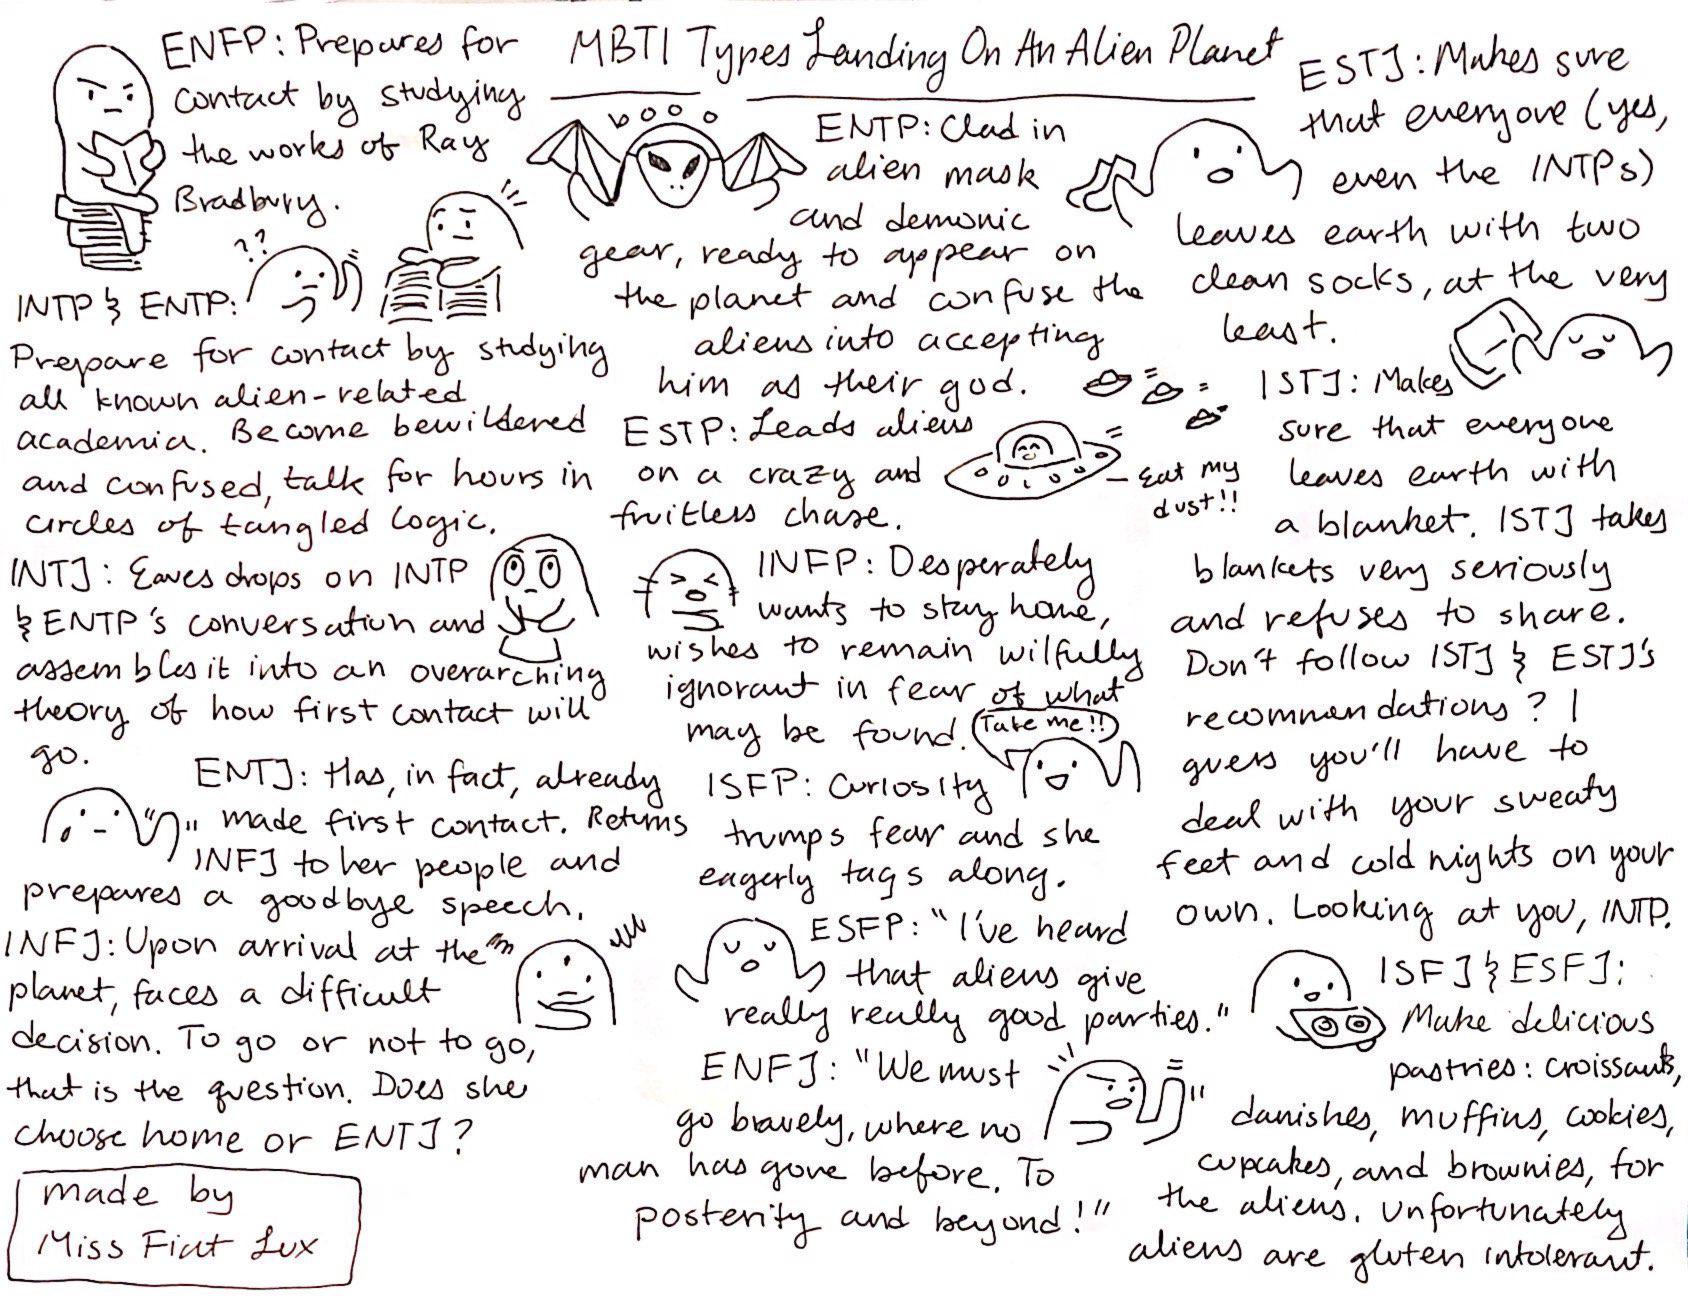 MBTI Types Landing On An Alien Planet
ENFP: Prepares for
contact by studying
the works of Ray
Bradbury.
??
INTP & ENTP:
Prepare for contact by studying
all known alien-related
academia. Become bewildered
and confused, talk for hours in
circles of tangled logic.
INTJ: Eavesdrops on INTP
& ENTP's conversation and
assembles it into an overarching
theory of how first contact will
go.
ENTJ: Has, in fact, already
made first contact. Returns
INFJ to her people and
prepares a goodbye speech.
INFJ: Upon arrival at the
planet, faces a difficult
decision. To go or not to go,
that is the question. Does she
choose home or ENTJ?
made by
Miss Fiat Lux
booo
ENTP: Clad in
alien mask
and demonic
gear, ready to appear on
the planet and confuse the
aliens into accepting
him as their god.
ESTP: Leads aliens
on a crazy and
fruitless chase.
- Eat my
dust!!
INFP: Desperately
wants to stay home,
wishes to remain wilfully
ignorant in fear of what
may be found.
Take me!!
ISFP: Curiosity
trumps fear and she
eagerly tags along.
ESFP: "I've heard
that aliens give
really really good parties."
ENFJ: "We must
go bravely, where no
man has gone before. To
posterity and beyond!"
ESTJ: Makes sure
that everyone (yes,
even the INTPs)
leaves earth with two
clean socks, at the very
least.
ISTJ: Makes
sure that everyone
leaves earth with
a blanket. ISTJ takes
blankets very seriously
and refuses to share.
Don't follow ISTJ & ESTJ's
recommendations? I
guess you'll have to
deal with your sweaty
feet and cold nights on your
own. Looking at you, INTP.
ISFJ & ESFJ:
Make delicious
pastries: croissants,
danishes, muffins, cookies,
cupcakes, and brownies, for
the aliens. Unfortunately
aliens are gluten intolerant.